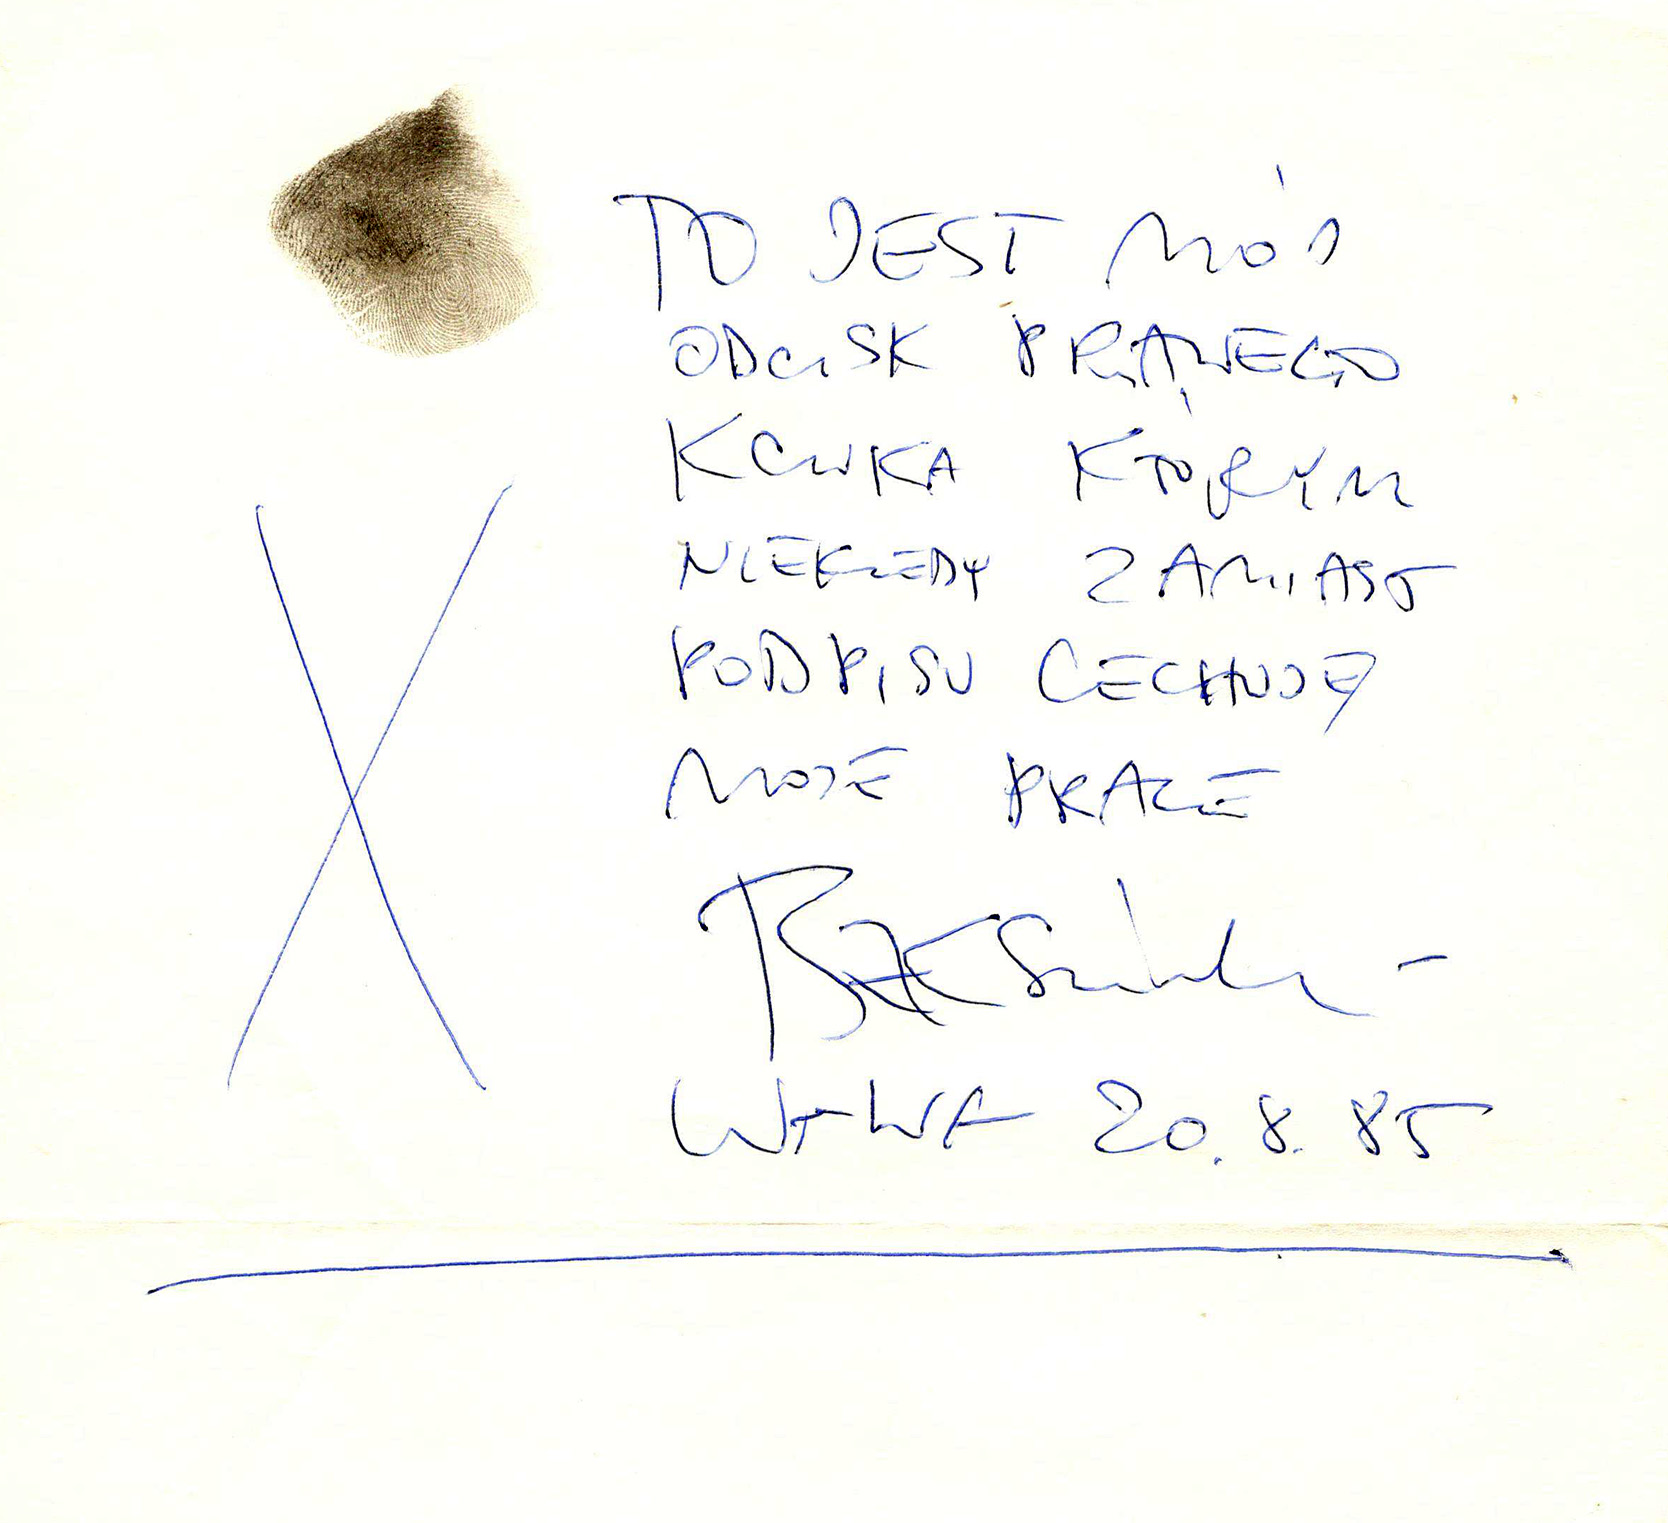 TO JEST MÓJ
ODCISK PRAWEGO
KCIUKA KTÓRYM
NIEKIEDY ZAMIAST
PODPISU CECHUJĘ
MOJE PRACE
BEKSIŃSKI
WAWA 20.8.85